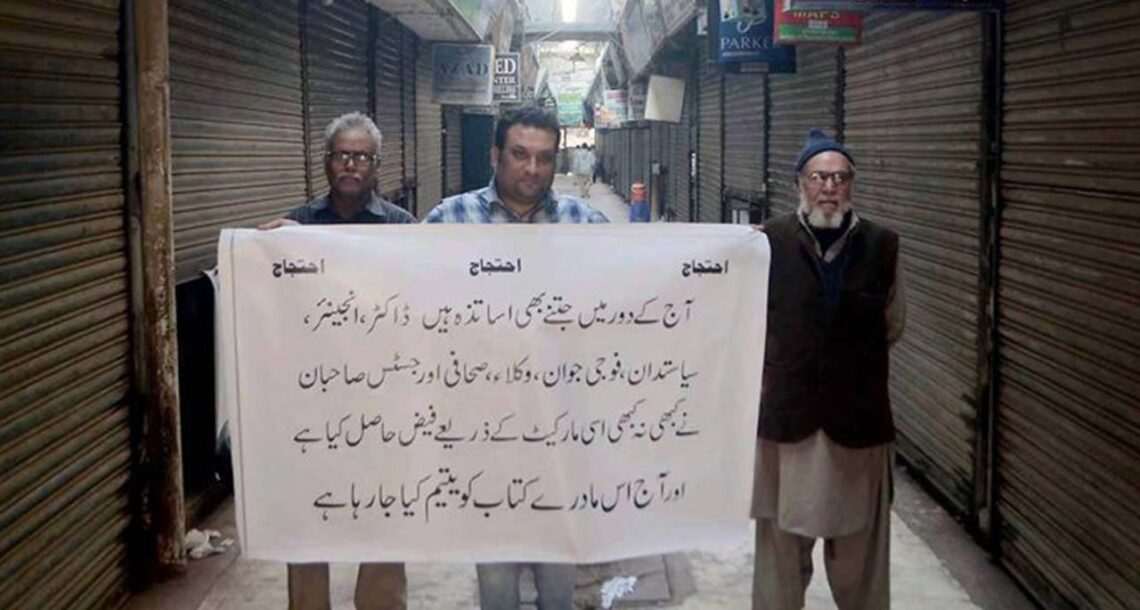 AZAD
ED
NTER
PARKE
MAPS
احتجاج احتجاج احتجاج
آج کے دور میں جتنے بھی اساتذہ ہیں ڈاکٹر، انجینئر،
سیاستدان، فوجی جوان، وکلاء، صحافی اور جسٹس صاحبان
نے کبھی نہ کبھی اسی مارکیٹ کے ذریعے فیض حاصل کیا ہے
اور آج اس مادرے کتاب کو یتیم کیا جا رہا ہے